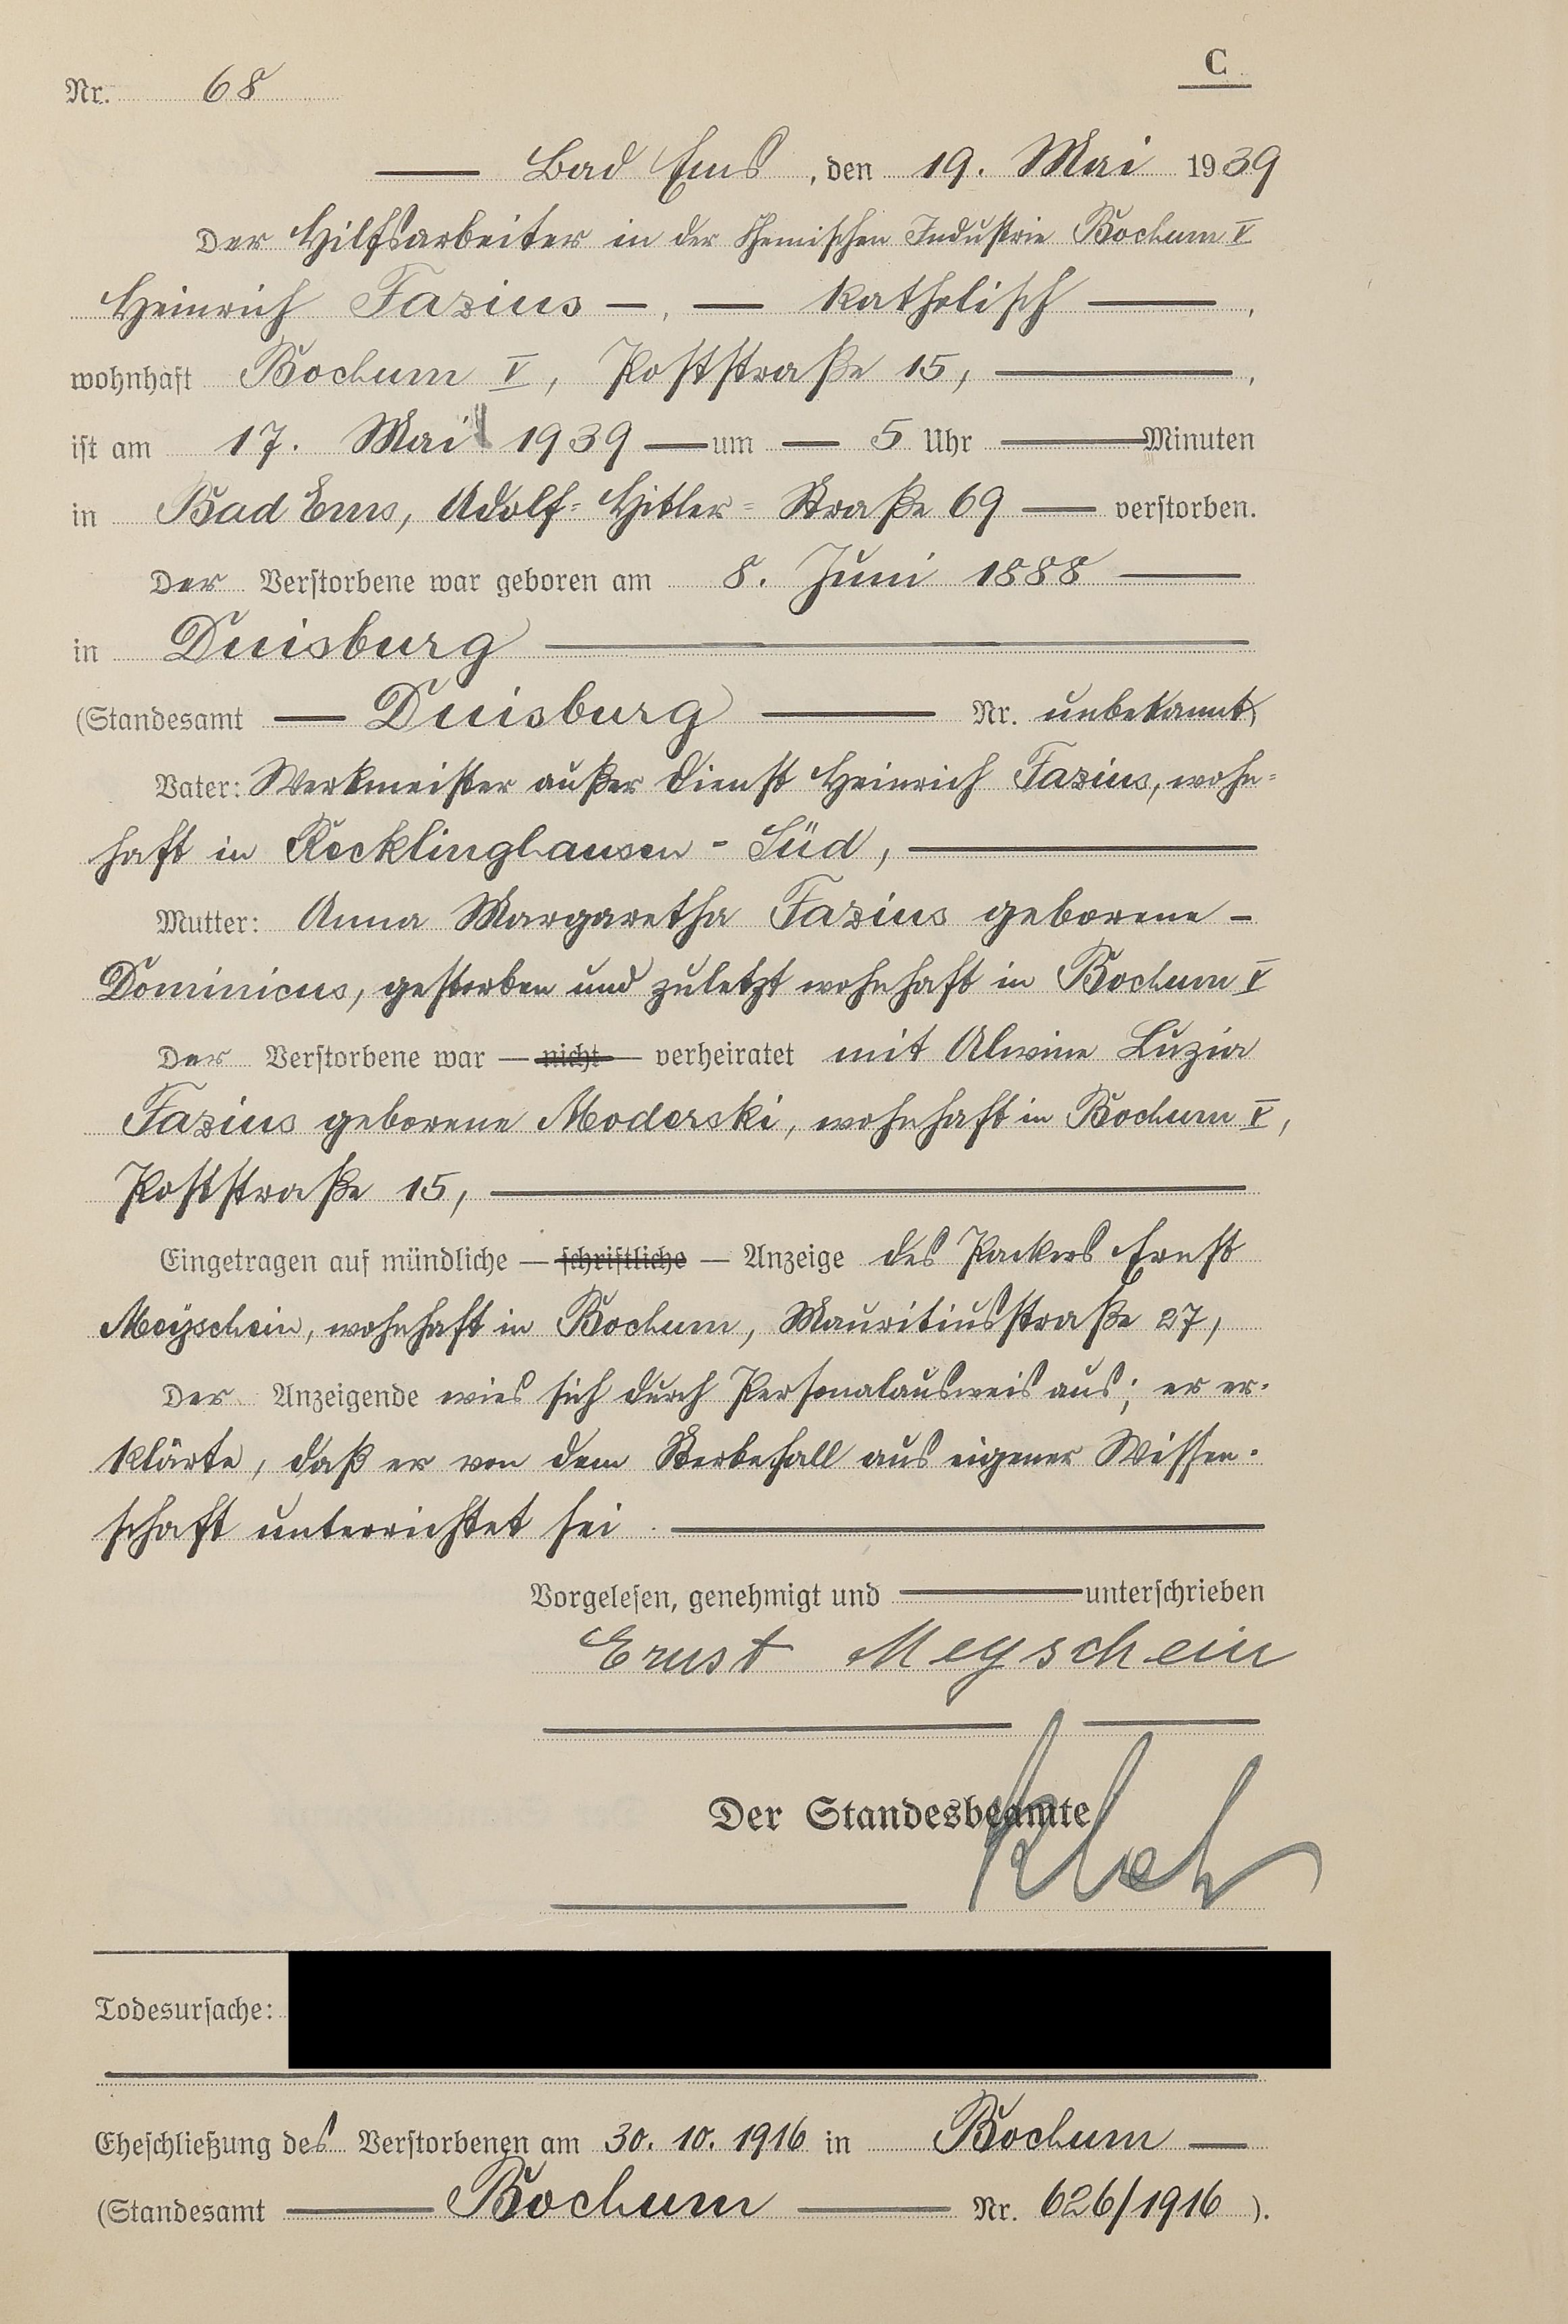 C
Nr. 68
Bad Ems, den 19. Mai 1939
Der Hilfsarbeiter in der Chemischen Industrie Bochum V
Heinrich Fasius —, — katholisch —,
wohnhaft Bochum V, Poststraße 15, —,
ist am 17. Mai 1939 — um — 5 Uhr — Minuten
in Bad Ems, Adolf-Hitler-Straße 69 — verstorben.
Der Verstorbene war geboren am 8. Juni 1888 —
in Duisburg —
(Standesamt — Duisburg — Nr. unbekannt)
Vater: Werkmeister außer Dienst Heinrich Fasius, wohn-
haft in Recklinghausen-Süd, —
Mutter: Anna Margaretha Fasius geborene —
Dominicus, gestorben und zuletzt wohnhaft in Bochum V
Der Verstorbene war — nicht — verheiratet mit Alwine Luzia
Fasius geborene Moderski, wohnhaft in Bochum V,
Poststraße 15, —
Eingetragen auf mündliche — schriftliche — Anzeige des Packers Ernst
Meyschein, wohnhaft in Bochum, Mauritiusstraße 27,
Der Anzeigende wies sich durch Personalausweis aus; er er-
klärte, daß er von dem Sterbefall aus eigener Wissen-
schaft unterrichtet sei. —
Vorgelesen, genehmigt und — unterschrieben
Ernst Meyschein
Der Standesbeamte
Todesursache:
Eheschließung des Verstorbenen am 30. 10. 1916 in Bochum —
(Standesamt — Bochum — Nr. 626/1916).